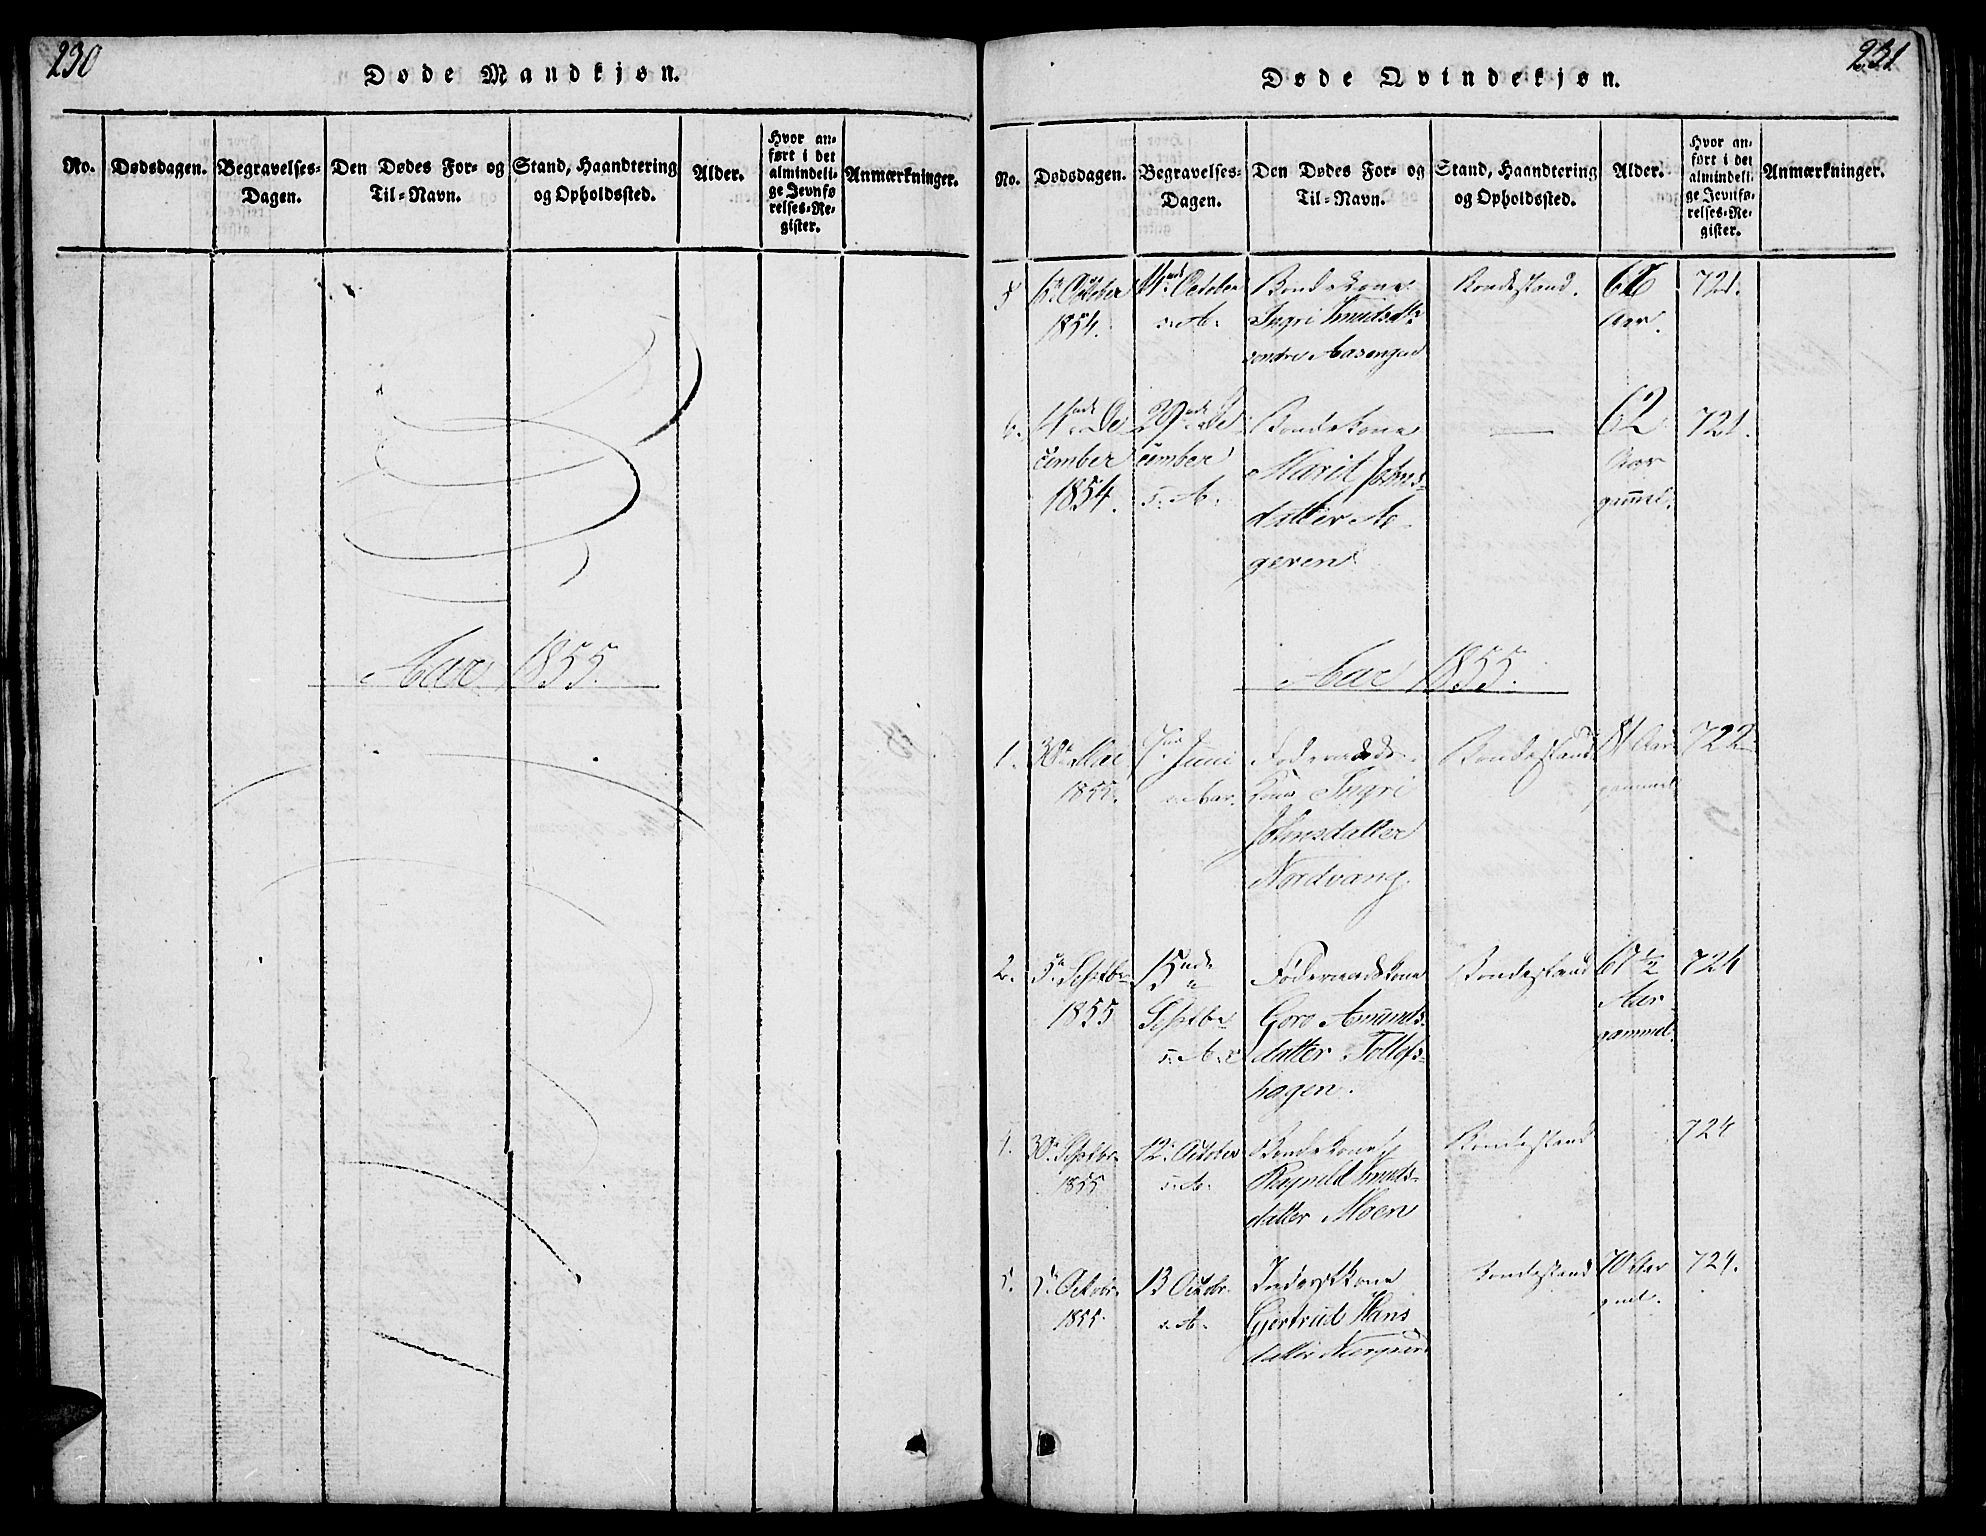 230
Døde Mandkjøn.
No.
Dødsdagen.
Begravelses-
Dagen.
Den Dødes For- og
Til-Navn.
Stand, Haandtering
og Opholdssted.
Alder.
Hvor an-
ført i det
almindeli-
ge Jevnfø
relses-Re-
gister.
Anmærkninger.
Aar 1855.
231
Døde Qvindekjøn.
No.
Dødsdagen.
Begravelses-
Dagen.
Den Dødes For- og
Til-Navn.
Stand, Haandtering
og Opholdssted.
Alder.
Hvor an-
ført i det
almindeli-
ge Jevnfø-
relses-Re-
gister.
Anmærkninger.
5 6te October
1854.
October
s. A.
Bondekone
Ingri Knudsdtr
søndre Aasengen
Bondestand.
Aar.
721.
6. De
cember
1854.
29nde De
cember
s. A.
Bondekone
Marit Johns-
datter
geren
—
62
Aar
gammel.
721.
Aar 1855.
1. 30te Mai
1855.
7nde Juni
s. Aar.
Føderaads-
Kone Ingri
Johnsdatter
Nordvang
Bondestand
81 Aar
gammel
722
2. 5te Septbr
1855
15nde
Septbr
s. A.
Føderaadskone
Goro Amunds-
datter Tollofs-
hagen.
Bondestand
67 1/2
Aar
gammel.
724
30te Septbr
1855
12te October
s. A.
Bondekone
Ragnild Knuds-
datter Moen
Bondestand
724
5. 5te Octobr.
1855.
13 Octobr.
s. A.
Inderstkone
Gjertrud Hans
datter
Bondestand
70 Aar
gml.
724.